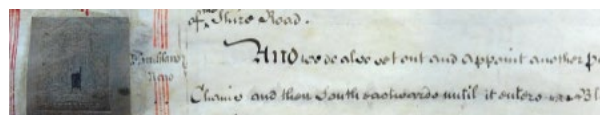 of the Shire Road.
Road
And we do also set out and appoint another
Chains and then South eastwards until it enters